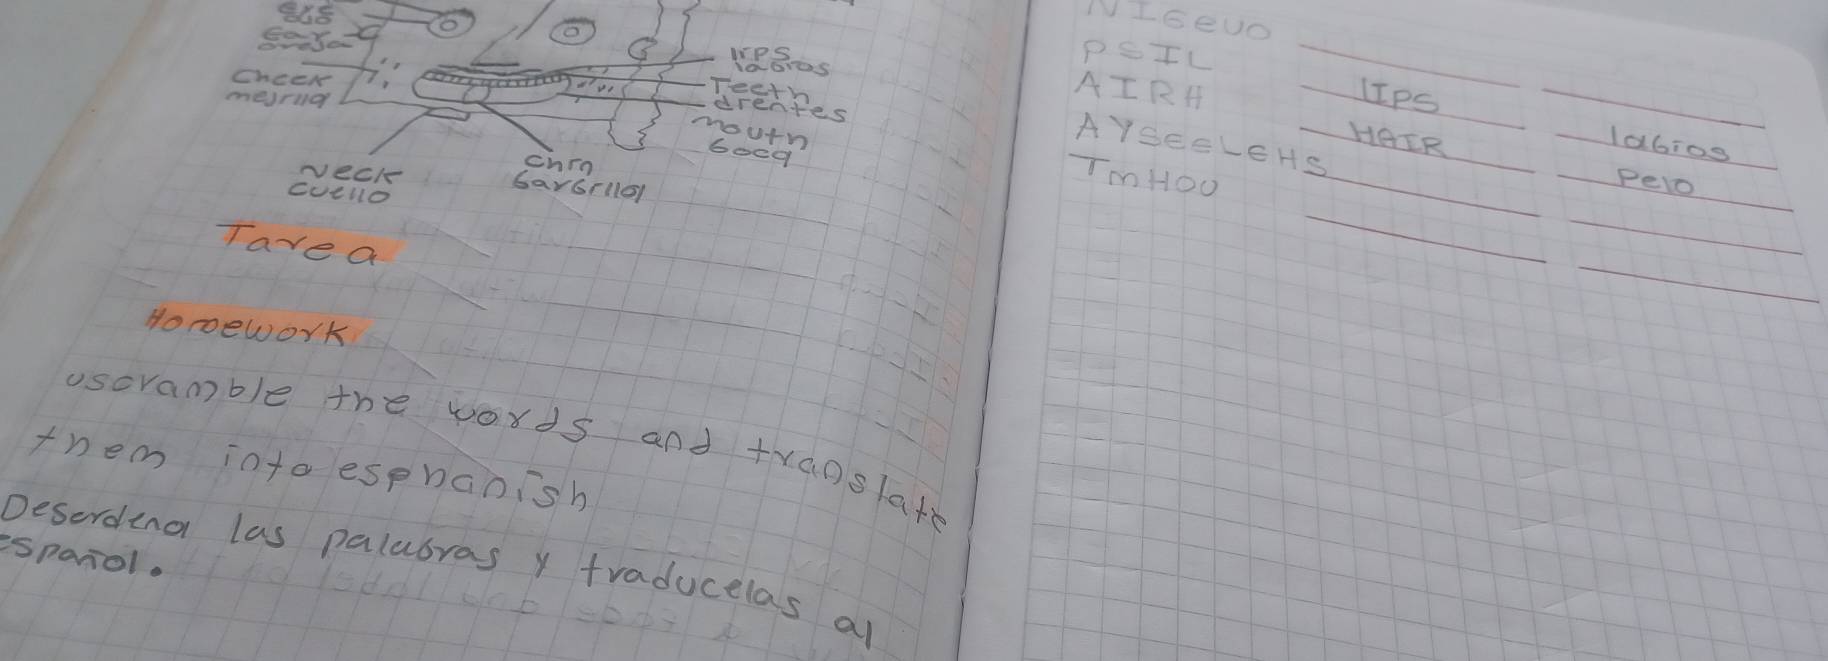 ear
oreja
cheek
mejrlla
lrps
labros
Teeth
drentes
mouth
boca
Neck
cuello
chrn
barbrlla
Tarea
Homework
uscramble the words and translate
them into esphanish
Desordena las palabras y traducelas al
español.
NIGEUO
PSIL LIPS labios
AIRH HAIR Pelo
AYSEELEHS
TMHOU